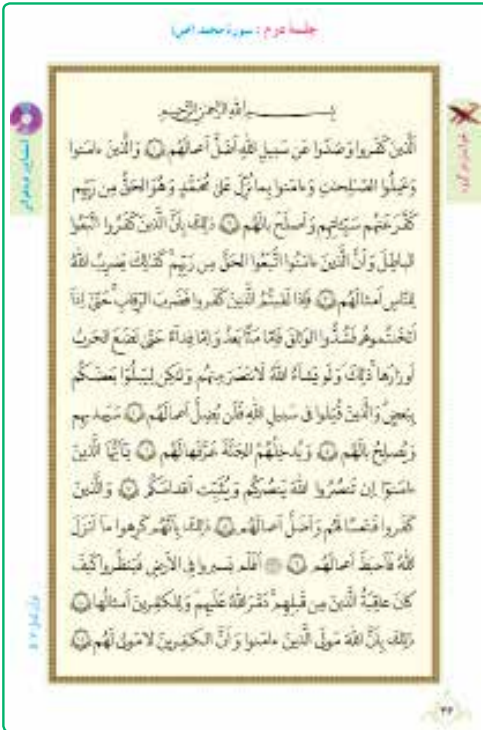 جلسهٔ دوم : سورهٔ محمد (ص)
بِسْمِ اللَّهِ الرَّحْمَٰنِ الرَّحِيمِ
اَلَّذينَ كَفَروا وَصَدّوا عَن سَبيلِ اللّٰهِ اَضَلَّ اَعمالَهُم ۝۱ وَالَّذينَ ءامَنوا
وَعَمِلُوا الصّٰلِحٰتِ وَءامَنوا بِما نُزِّلَ عَلىٰ مُحَمَّدٍ وَهُوَ الحَقُّ مِن رَبِّهِم
كَفَّرَ عَنهُم سَيِّئاتِهِم وَاَصلَحَ بالَهُم ۝۲ ذٰلِكَ بِاَنَّ الَّذينَ كَفَرُوا اتَّبَعُوا
الباطِلَ وَاَنَّ الَّذينَ ءامَنُوا اتَّبَعُوا الحَقَّ مِن رَبِّهِم كَذٰلِكَ يَضرِبُ اللّٰهُ
لِلنّاسِ اَمثالَهُم ۝۳ فَاِذا لَقيتُمُ الَّذينَ كَفَروا فَضَربَ الرِّقابِ حَتّىٰ اِذا
اَثخَنتُموهُم فَشُدُّوا الوَثاقَ فَاِمّا مَنًّا بَعدُ وَاِمّا فِداءً حَتّىٰ تَضَعَ الحَربُ
اَوزارَها ذٰلِكَ وَلَو يَشاءُ اللّٰهُ لَانتَصَرَ مِنهُم وَلٰكِن لِيَبلُوَا بَعضَكُم
بِبَعضٍ وَالَّذينَ قُتِلوا فى سَبيلِ اللّٰهِ فَلَن يُضِلَّ اَعمالَهُم ۝۴ سَيَهديهِم
وَيُصلِحُ بالَهُم ۝۵ وَيُدخِلُهُمُ الجَنَّةَ عَرَّفَها لَهُم ۝۶ يٰاَيُّهَا الَّذينَ
ءامَنوا اِن تَنصُرُوا اللّٰهَ يَنصُركُم وَيُثَبِّت اَقدامَكُم ۝۷ وَالَّذينَ
كَفَروا فَتَعسًا لَهُم وَاَضَلَّ اَعمالَهُم ۝۸ ذٰلِكَ بِاَنَّهُم كَرِهوا ما اَنزَلَ
اللّٰهُ فَاَحبَطَ اَعمالَهُم ۝۹ ۞ اَفَلَم يَسيروا فِى الاَرضِ فَيَنظُروا كَيفَ
كانَ عاقِبَةُ الَّذينَ مِن قَبلِهِم دَمَّرَ اللّٰهُ عَلَيهِم وَلِلكٰفِرينَ اَمثالُها ۝۱۰
ذٰلِكَ بِاَنَّ اللّٰهَ مَولَى الَّذينَ ءامَنوا وَاَنَّ الكٰفِرينَ لا مَولىٰ لَهُم ۝۱۱